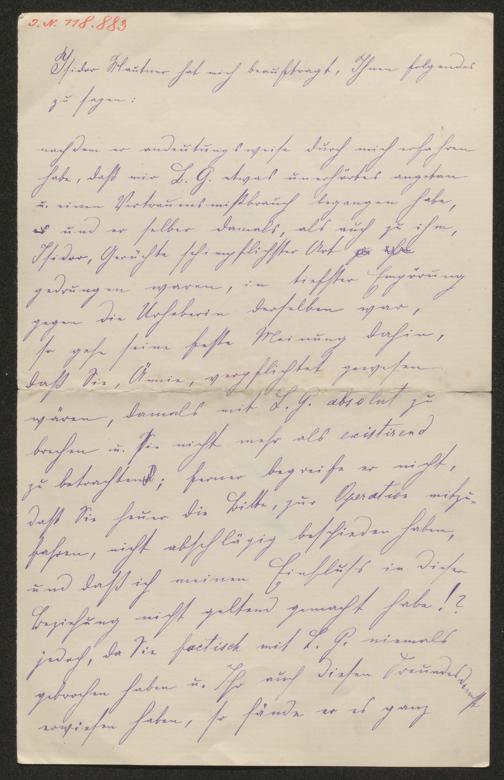 I.N. 118.883
Isidor Mautner hat mich beauftragt, Ihnen folgendes
zu sagen:
nachdem er andeutungsweise durch mich erfahren
habe, daß mir L. G. etwas unerhörtes angetan
u. einen Vertrauensmißbrauch begangen habe,
und er selber damals, als auch zu ihm,
Isidor, Gerüchte schimpflichster Art
gedrungen waren, in tiefster Empörung
gegen die Urheberin derselben war,
so gehe seine feste Meinung dahin,
daß Sie, Ännie, verpflichtet gewesen
wären, damals mit L. G. absolut zu
brechen u. Sie nicht mehr als existirend
zu betrachten; ferner begreife er nicht,
daß Sie heuer die Bitte, zur Operation mitzu-
fahren, nicht abschlägig beschieden haben,
und daß ich meinen Einfluß in dieser
Beziehung nicht geltend gemacht habe!?
jedoch, da Sie factisch mit L. G. niemals
gebrochen haben u. Ihr auch diesen Freundesdienst
erwiesen haben, so fände er es ganz